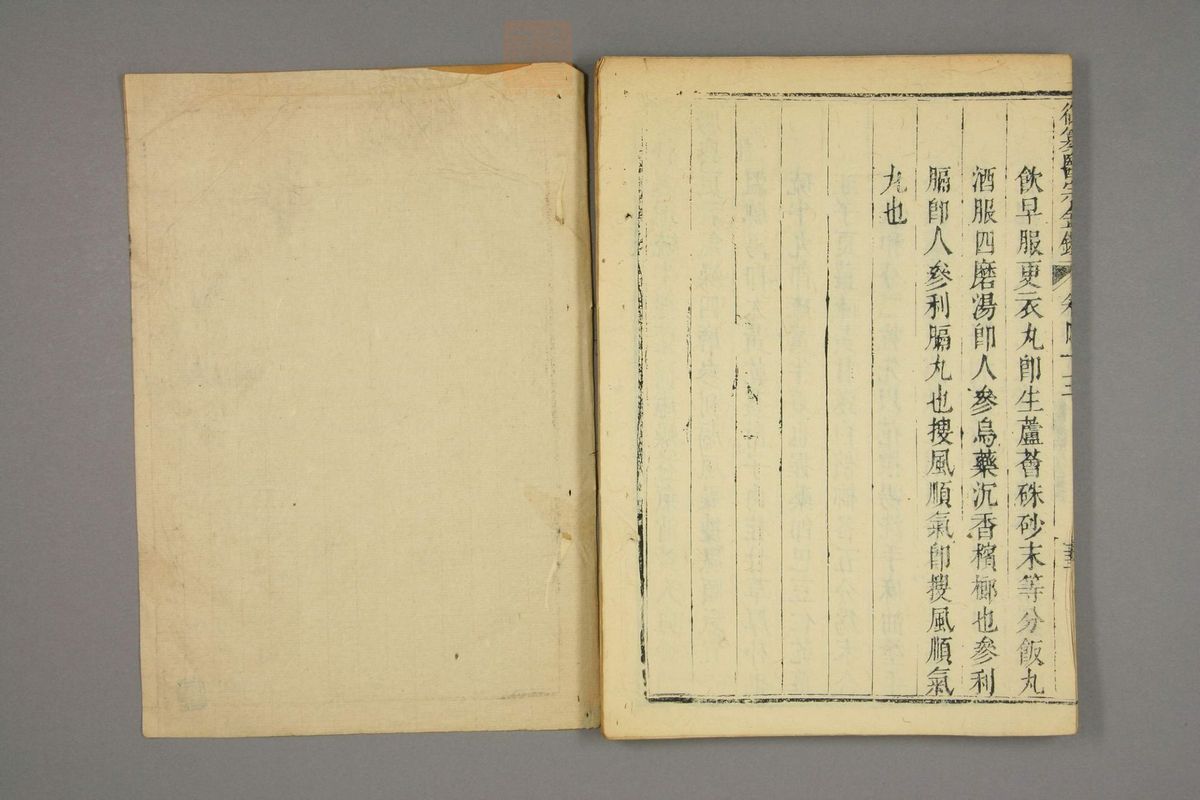 御纂醫宗金鑑 卷四十三
飲早服更衣丸卽生蘆薈硃砂末等分飯丸
酒服四磨湯卽人參烏藥沉香檳榔也參利
膈卽人參利膈丸也搜風順氣卽搜風順氣
丸也